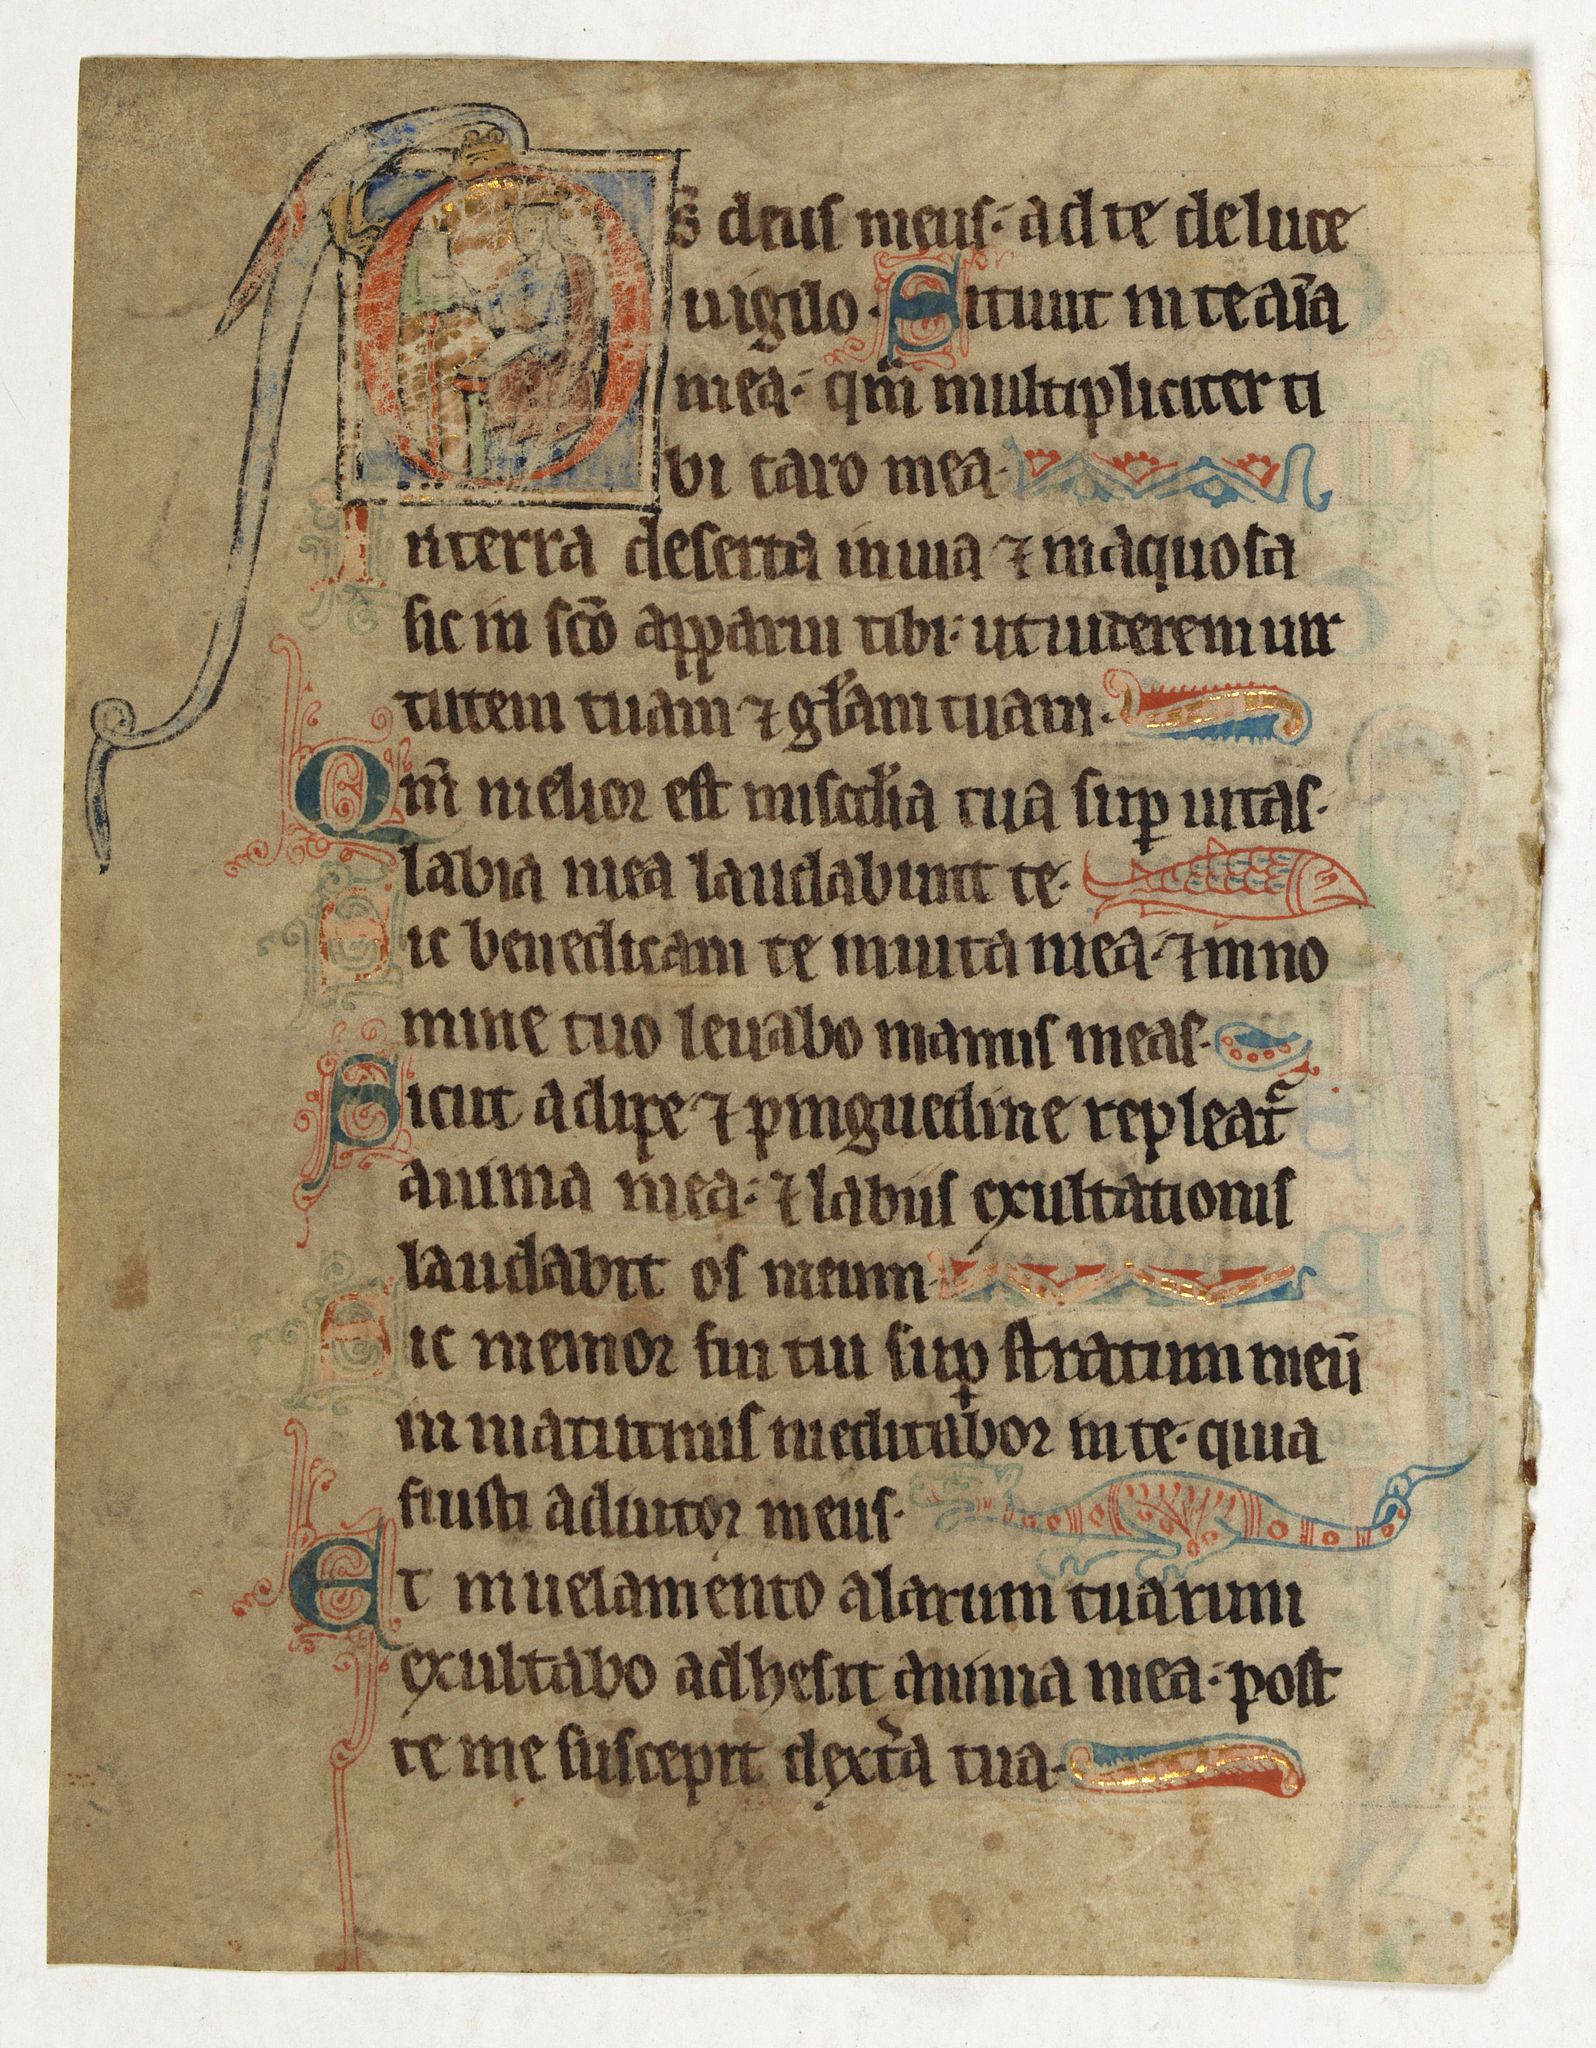 Ds̄ deus meus· ad te de luce
uigilo· Sitiuit in te aīa
mea· qm̄ multipliciter ti
bi caro mea·
In terra deserta inuia ⁊ inaquosa
sic in sc̄o apparui tibi· ut uiderem uir
tutem tuam ⁊ gl̄am tuam·
Qm̄ melior est miscd̄ia tua suꝑ uitas·
labia mea laudabunt te·
Sic benedicam te in uita mea· ⁊ in no
mine tuo leuabo manus meas·
Sicut adipe ⁊ pinguedine repleat᷑
anima mea· ⁊ labiis exultationis
laudabit os meum·
Sic memor fui tui suꝑ stratum meū
in matutinis meditabor in te· quia
fuisti adiutor meus·
Et in uelamento alarum tuarum
exultabo adhesit anima mea· post
te me suscepit dext̾a tua·